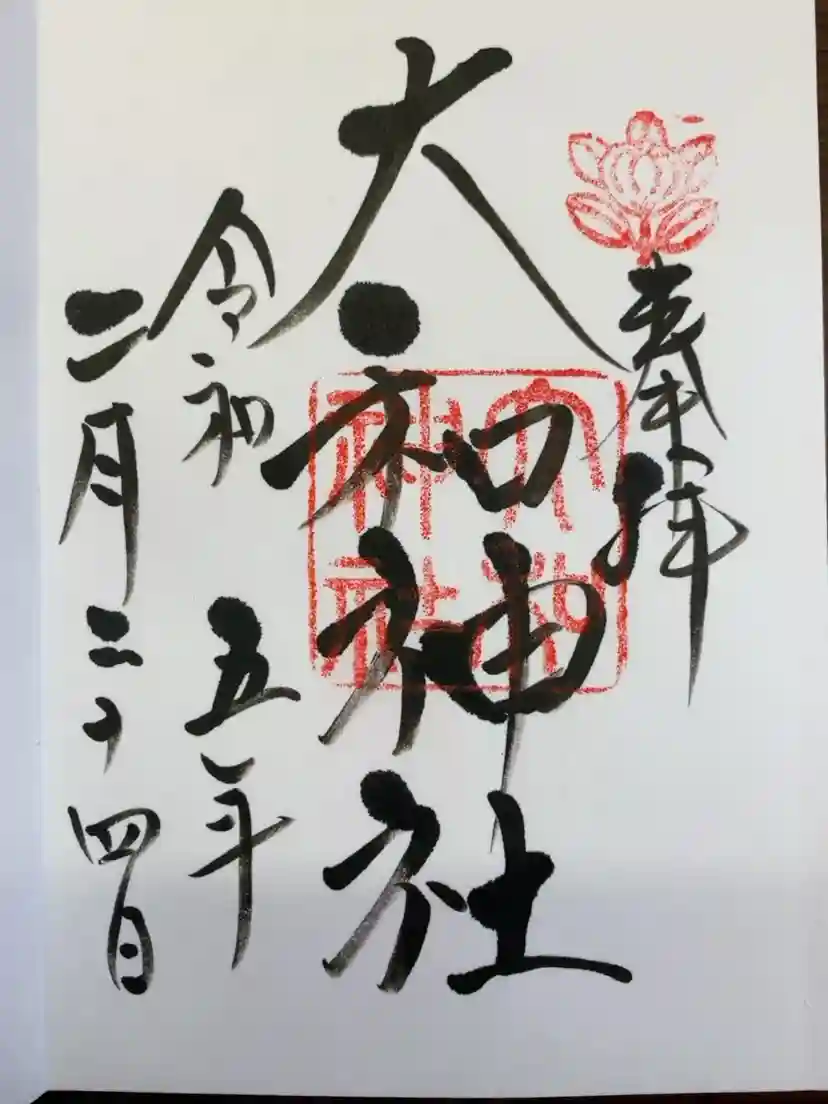 奉拝
大和神社
大和
神社
令和五年
二月二十四日